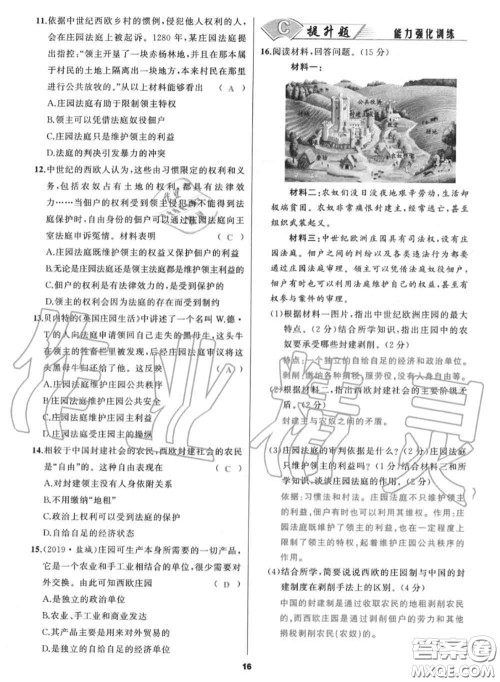 11.依据中世纪西欧乡村的惯例,侵犯他人权利的人,
会在庄园法庭上被起诉。1280 年,某庄园法庭提
出指控:“领主开垦了一块赤杨林地,并因此在本属
于村民的土地上隔离出一块地方,本来村民在那里
进行公共放牧的。”从以上材料能够看出 ( A )
A.庄园法庭有助于限制领主特权
B.领主可以凭借法庭奴役佃户
C.庄园法庭只是维护领主的利益
D.法庭的判决引发暴力的冲突
12.中世纪的西欧人认为,这些由习惯限定的权利和义
务,包括农奴占有土地的权利,都具有法律效
力……当佃户的权利受到领主侵犯而不能得到法
庭保护时,自由身份的佃户可以通过庄园法庭向王
室法庭申诉冤情。材料表明 ( C )
A.庄园法庭既维护领主的权益又保护佃户的利益
B.无论是庄园法庭还是领主法庭都维护领主利益
C.领主的权利要受到庄园法庭的限制
D.领主的权利会因为法庭的存在而受到制约
13.贝内特的《英国庄园生活》中讲述了一个名叫 W.德·
T的人向法庭申请领回自己走失的黑母牛,这头牛
在领主的牲畜栏里被发现。后经庄园法庭审议将这
头黑母牛归还给了他。这反映 ( A )
A.庄园法庭维护庄园公共秩序
B.庄园法庭维护佃户的利益
C.庄园法庭维护领主的利益
D.庄园法庭受庄园主的操纵
14.相较于中国封建社会的农民,西欧封建社会的农民
是“自由”的。这种自由表现在 ( C )
A.对封建领主没有人身依附关系
B.不用缴纳“地租”
C.政治上权利可以受到法庭的保护
D.可以自由买卖土地
15.(2019·盐城)庄园可生产本身所需要的一切产品,
它是一个农业和手工业相结合的单位,很少需要对
外交换。由此可知西欧庄园 ( D )
A.是独立的政治单位
B.农业、手工业和商业发达
C.其产品主要是用来对外贸易的
D.是独立的自给自足的经济单位
C 提升题 能力强化训练
16.阅读材料,回答问题。(15 分)
材料一:
材料二:农奴们没日没夜地艰辛劳动,生活却
极端贫困。农奴非常痛恨封建主,经常逃亡,甚至
组织武装起义。
材料三:中世纪欧洲庄园具有司法权,设有庄
园法庭。佃户之间的纠纷以及各类违法行为都
要通过庄园法庭审理。领主可以凭借法庭奴役佃户,
但佃户有时也可以利用法庭维护自己的权益,甚至有
权参与案件的审理。
(1)根据材料一图片,指出中世纪欧洲庄园的最大
特点。(2分)结合所学知识,指出庄园中的农
奴要受到哪些封建剥削。(2分)
特点:一个独立的自给自足的经济和政治单位。
剥削:缴纳各种捐税、服劳役、没有人身自由等。
(2)根据材料二,指出西欧社会的主要阶级矛
盾。(2分)
封建主与农奴之间的矛盾。
(3)庄园法庭的审判依据是什么?(2 分)庄园法庭
只维护领主的利益吗?(1 分)结合材料三和所
学知识,谈谈庄园法庭的作用。(2分)
依据:习惯法和村法。庄园法庭不只维护领主
的利益,也维护佃户和其他人的利益。作用:庄
园法庭既维护了领主的利益,也在一定程度上
限制了领主的特权,起着维护庄园公共秩序的
作用。
(4)结合所学,简要说说西欧的庄园制与中国的封
建制度在剥削手法上的区别。(2分)
中国的封建制是通过收取农民的地租剥削农民
的,而西欧庄园是通过剥削佃户的劳力和其他
捐税剥削农民(农奴)的。
16
作业精灵
答案圈
MXQE.COM